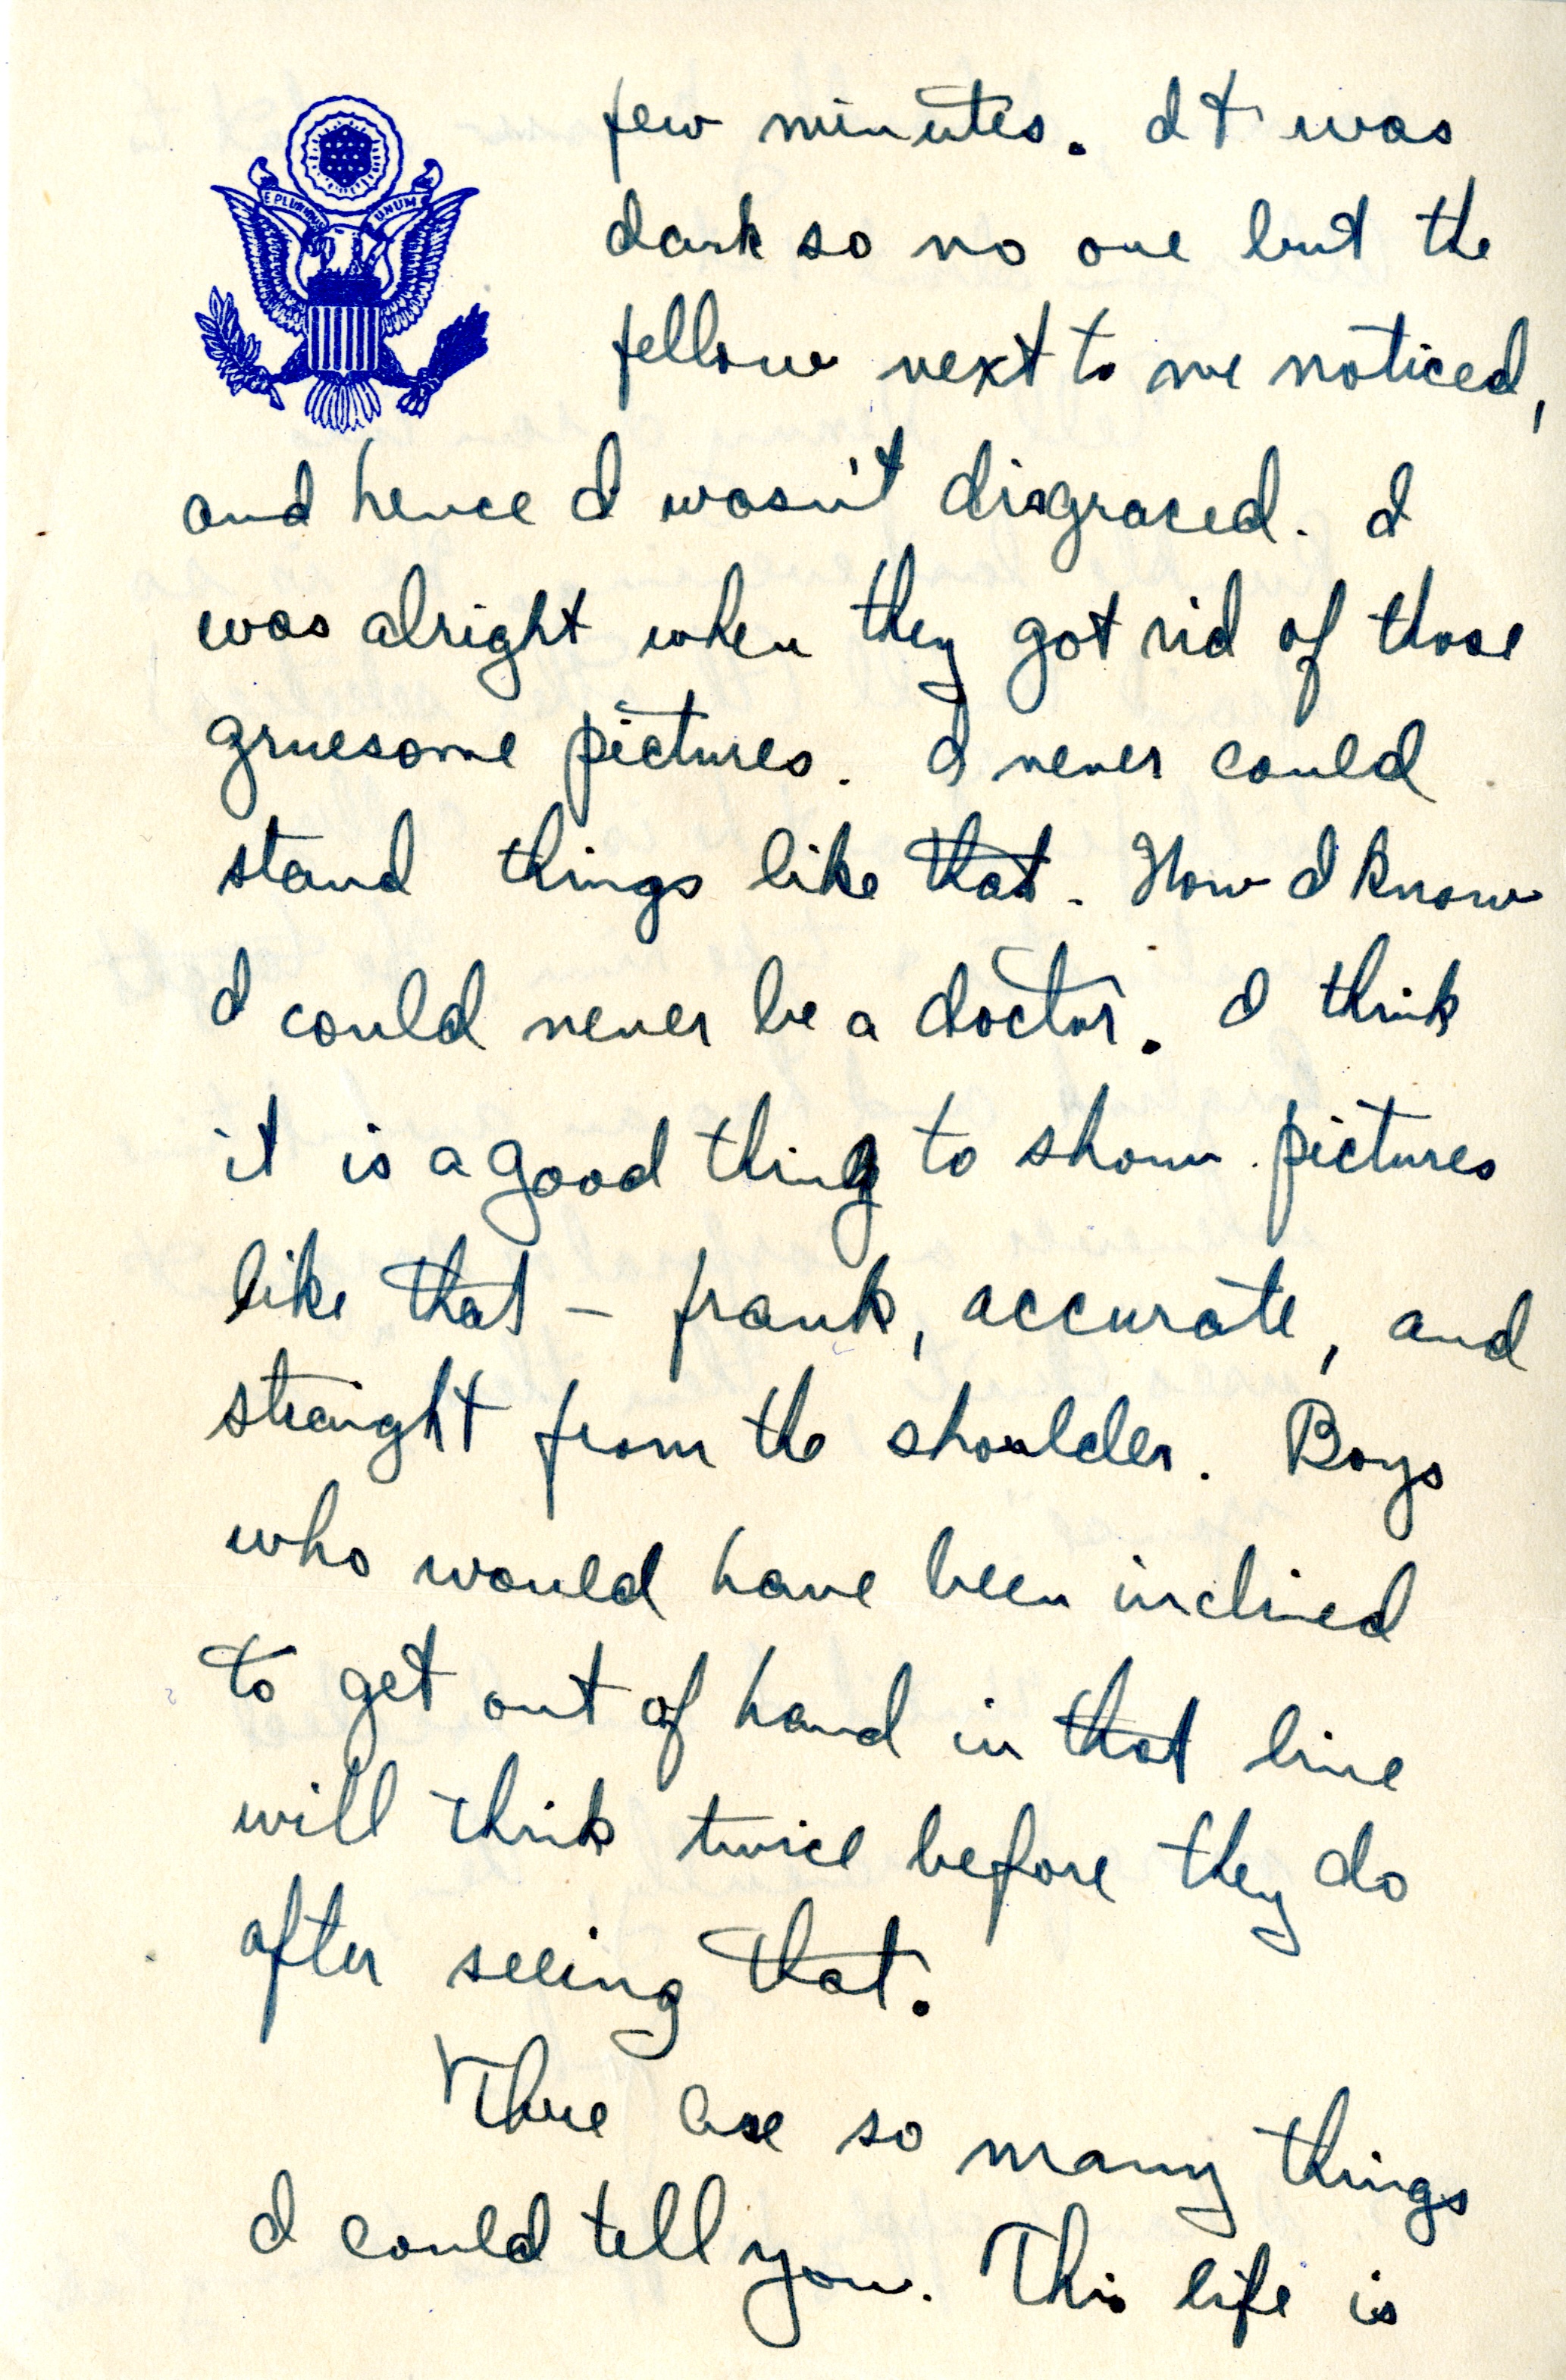 E PLURIBUS UNUM
few minutes. It was
dark so no one but the
fellow next to me noticed,
and hence I wasn't disgraced. I
was alright when they got rid of those
gruesome pictures. I never could
stand things like that. Now I know
I could never be a doctor. I think
it is a good thing to show pictures
like that – frank, accurate, and
straight from the shoulder. Boys
who would have been inclined
to get out of hand in that line
will think twice before they do
after seeing that.
There are so many things
I could tell you. This life is